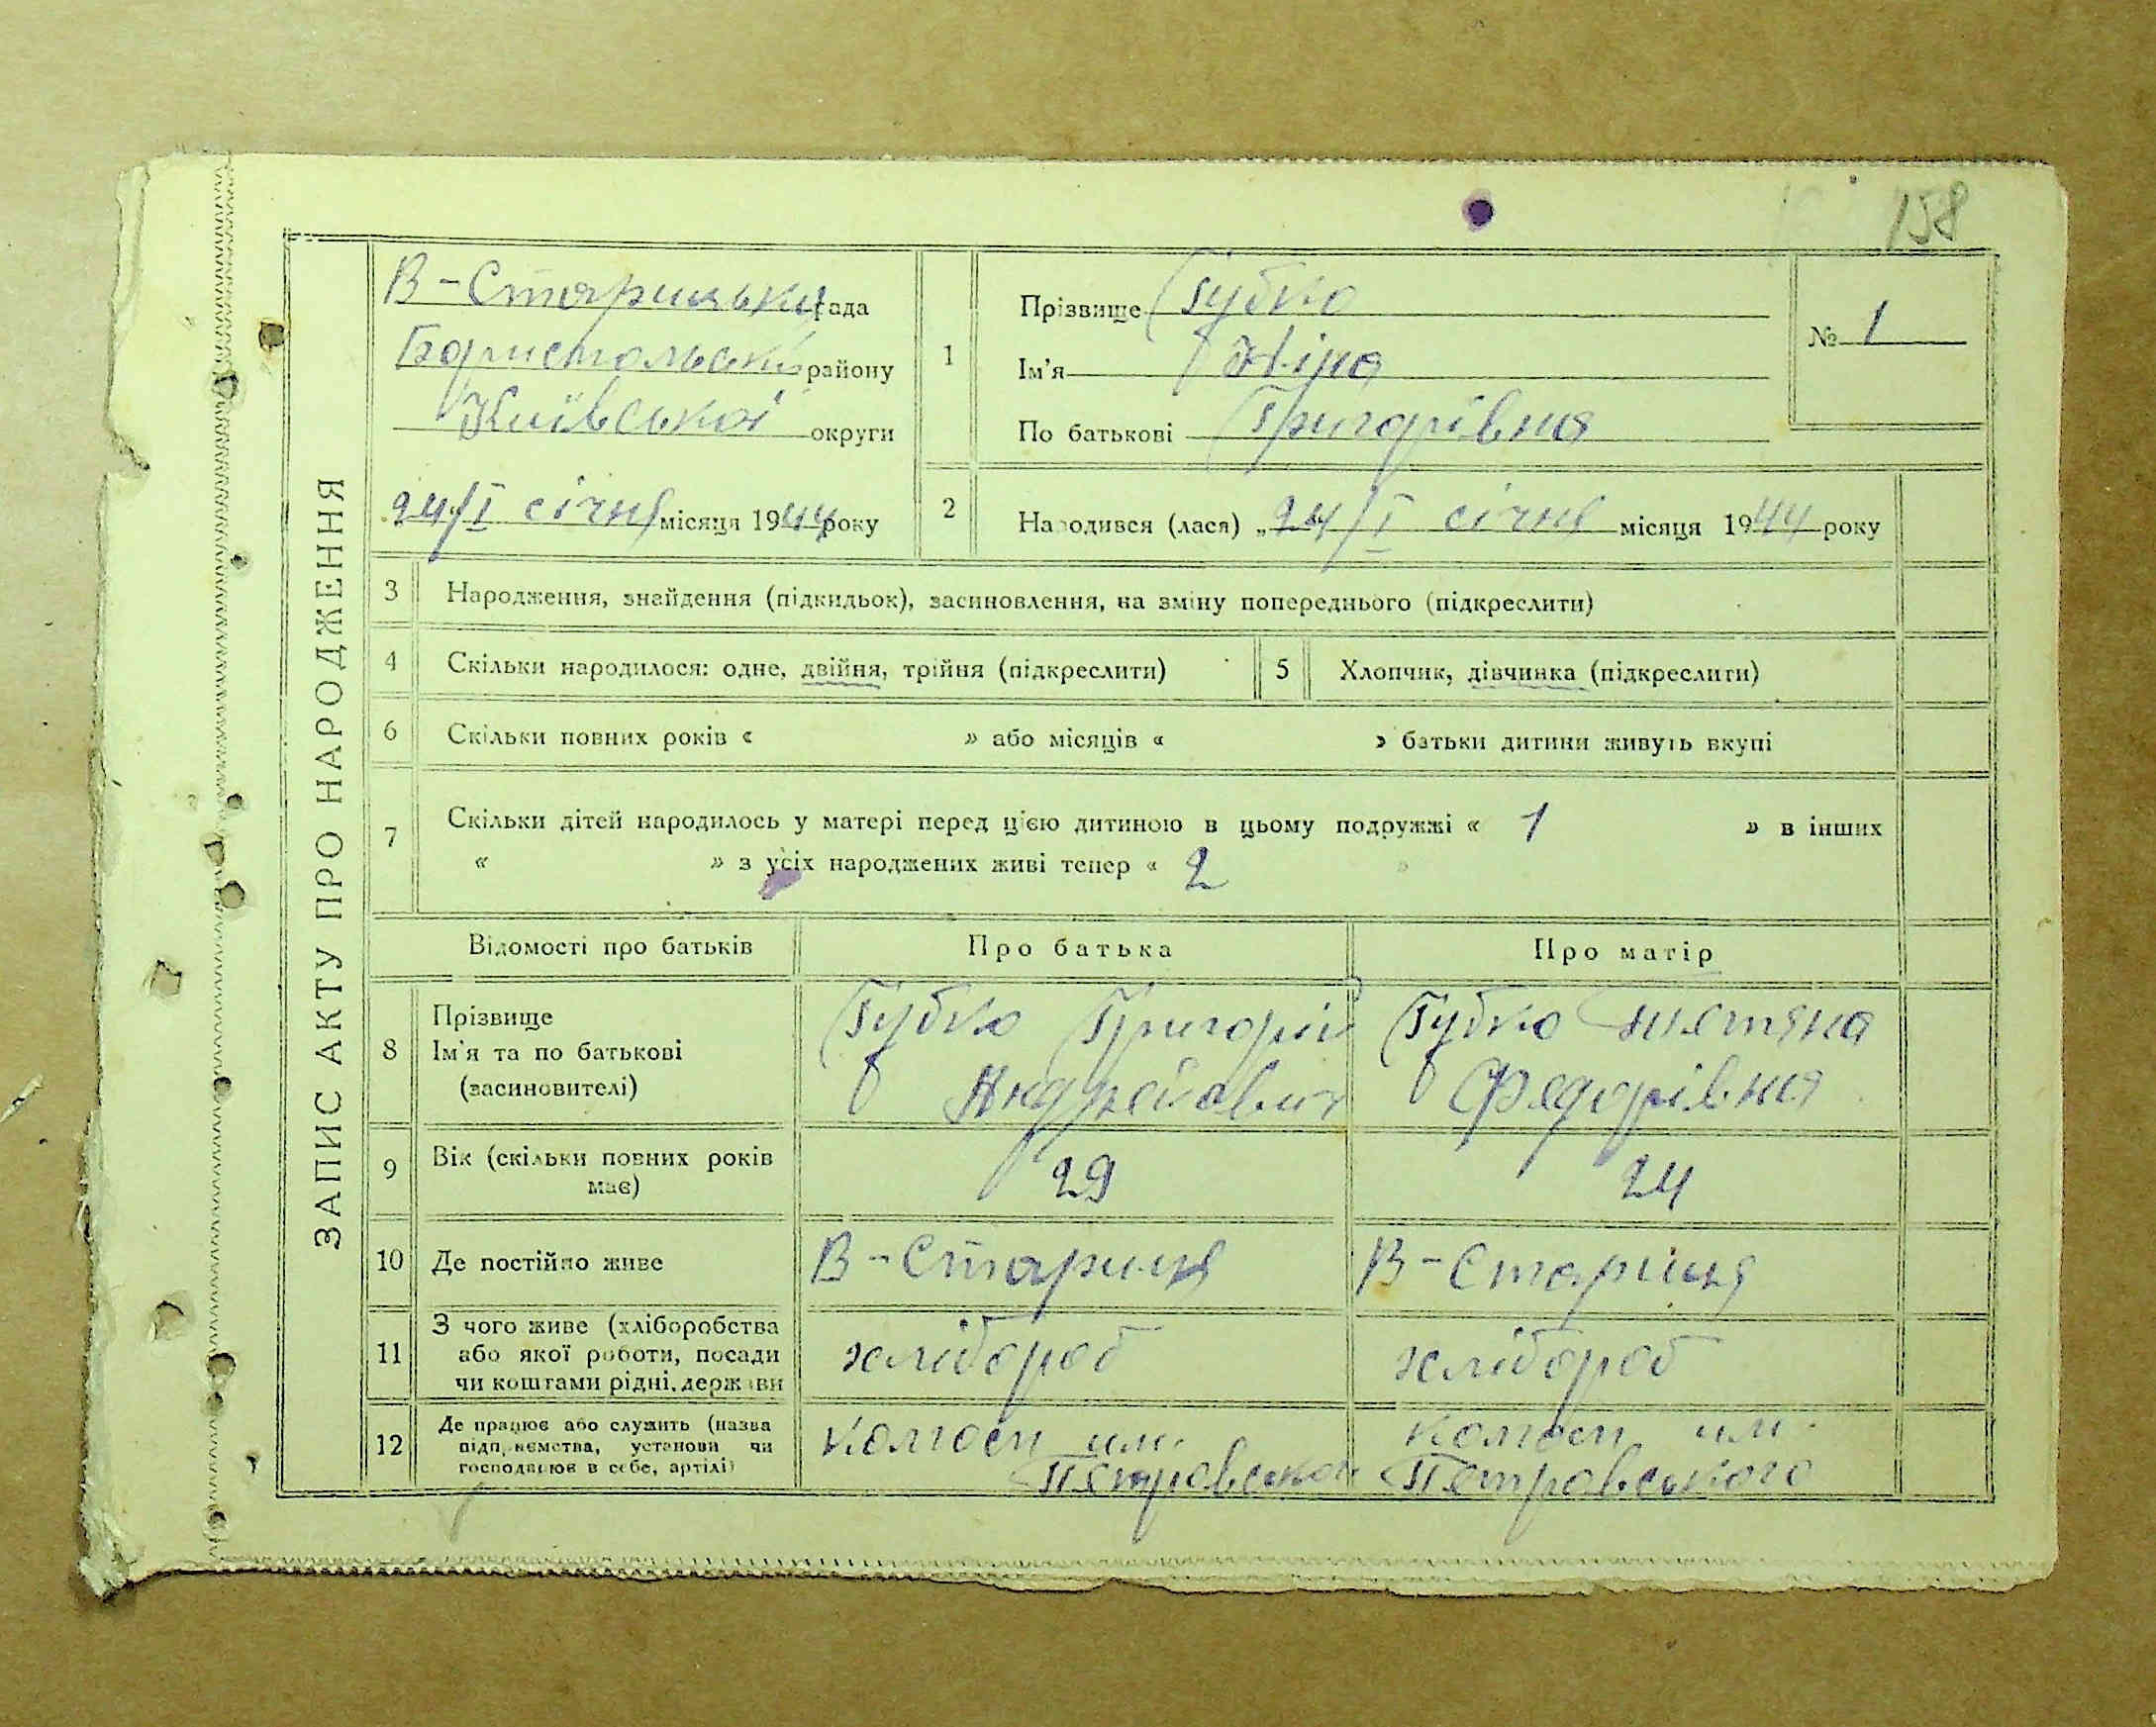 158
ЗАПИС АКТУ ПРО НАРОДЖЕННЯ
В-Старицька рада
Бориспольський району
Київської округи
24/I січня місяця 1944 року
1
Прізвище Губко
Ім'я Ніна
По батькові Григорівна
№ 1
2
Народився (лася) „24/I січня місяця 1944 року
3 Народження, знайдення (підкидьок), засиновлення, на зміну попереднього (підкреслити)
4 Скільки народилося: одне, двійня, трійня (підкреслити)
5 Хлопчик, дівчинка (підкреслити)
6 Скільки повних років « » або місяців « » батьки дитини живуть вкупі
7 Скільки дітей народилось у матері перед цією дитиною в цьому подружжі « 1 » в інших
« » з усіх народжених живі тепер « 2 »
Відомості про батьків Про батька Про матір
8 Прізвище
Ім'я та по батькові
(засиновителі)
Губко Григорій
Андрейович
Губко Тетяна
Федорівна
9 Вік (скільки повних років
має)
29 24
10 Де постійно живе В-Стариця В-Стариця
11 З чого живе (хліборобства
або якої роботи, посади
чи коштами рідні, держави
хлібороб хлібороб
12 Де працює або служить (назва
підприємства, установи чи
господарює в себе, артілі)
колгосп им.
Петровського
колгосп им.
Петровського